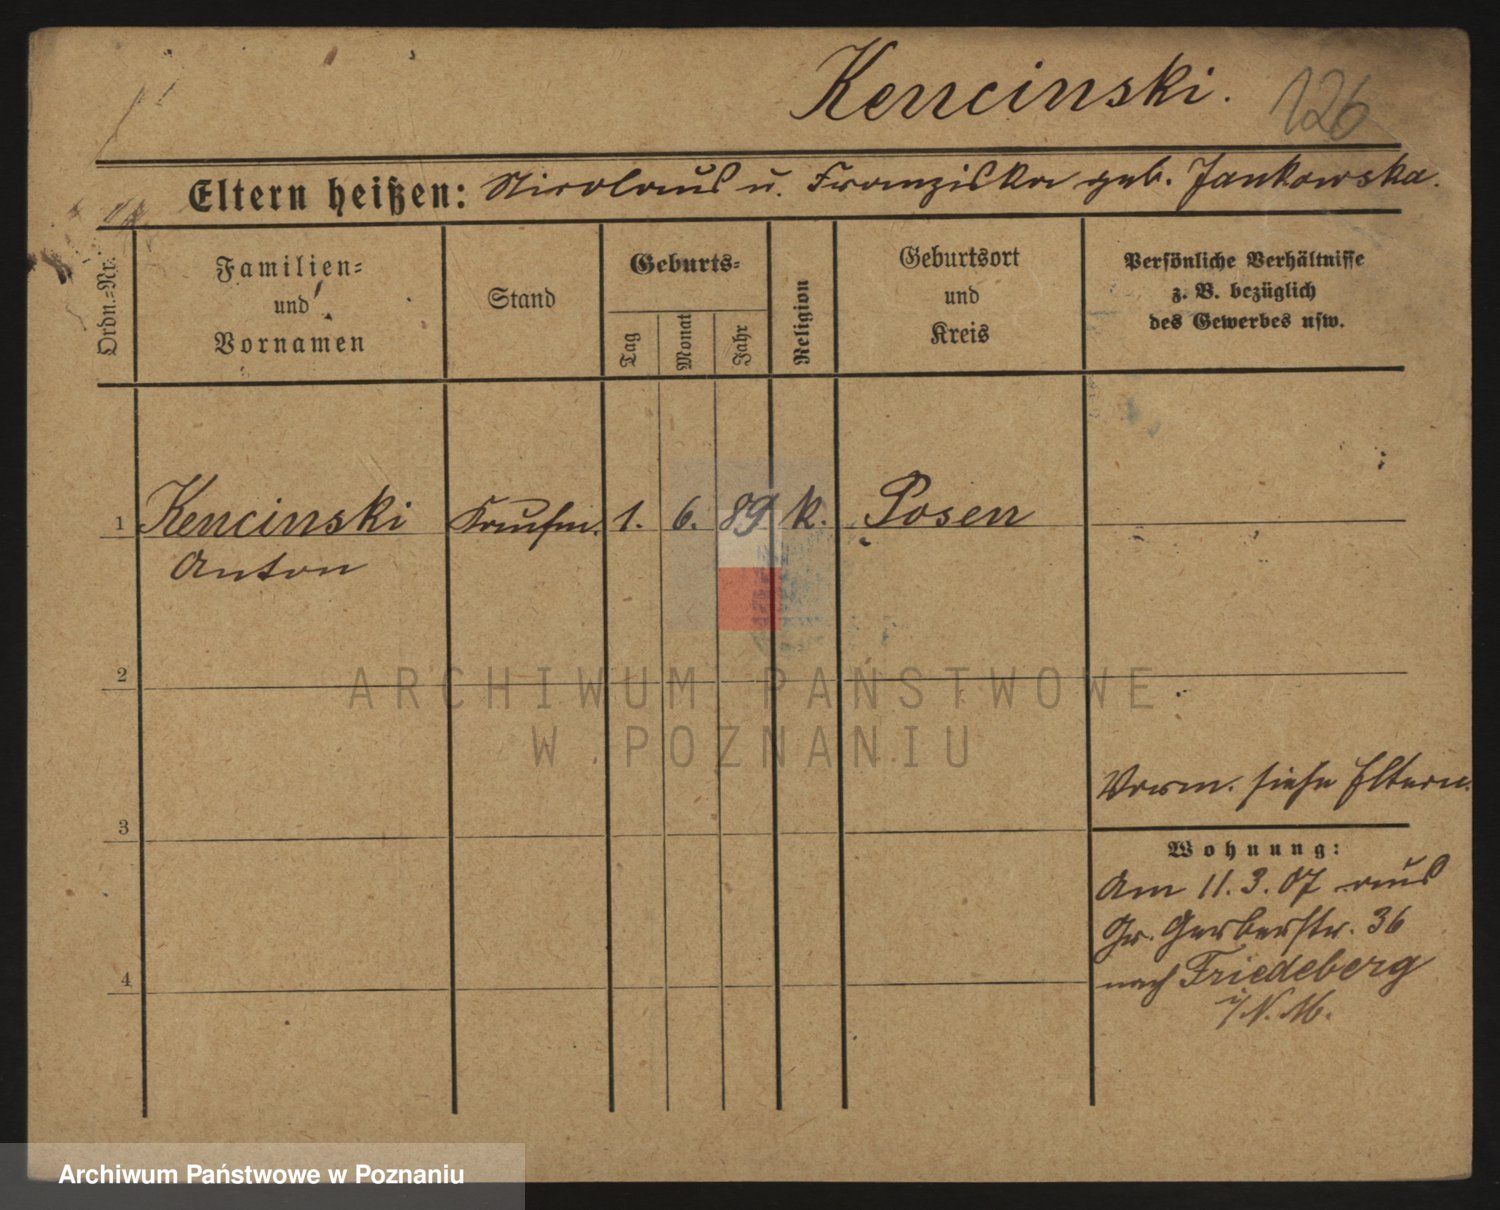 Kencinski.
126
Eltern heißen: Nicolaus u. Franziska geb. Jankowska.
Ordn.-Nr.
Familien-
und
Vornamen
Stand
Geburts-
Tag
Monat
Jahr
Religion
Geburtsort
und
Kreis
Persönliche Verhältnisse
z. B. bezüglich
des Gewerbes usw.
1 Kencinski Kaufm. 1. 6. 89 k. Posen
Anton
2
ARCHIWUM PAŃSTWOWE
W POZNANIU
Vorm. siehe Eltern.
3
Wohnung:
Am 11.3.07 aus
Gr. Gerberstr. 36
4
nach Friedeberg
i/N.M.
Archiwum Państwowe w Poznaniu